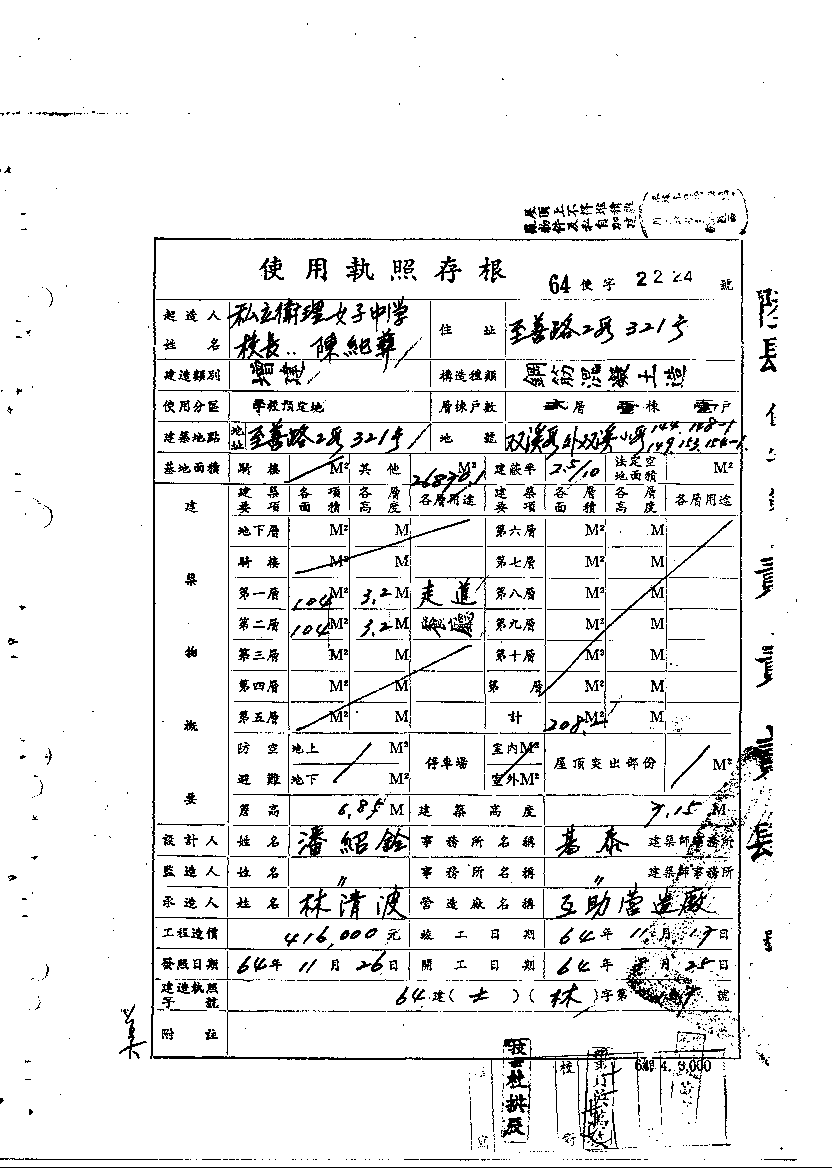 屋頂上不得堆積
使用執照存根 64使字 2224 號
起造人姓名 私立衛理女子中学 校長 陳紀彝 住址 至善路2段321号
建造類別 增建 構造種類 鋼筋混凝土造
使用分區 學校預定地 層棟戶數 層 棟 戶
建築地點 地址 至善路2段321号 地號 双溪段外双溪小段 144. 148-1
149. 153. 154-1.
基地面積 騎樓 M² 其他 M² 建蔽率 2.5/10 法定空地面積 M²
建築物概要 建築要項 各項面積 各層高度 各層用途 建築要項 各層面積 各層高度 各層用途
地下層 M² M 第六層 M² M
騎樓 M² M 第七層 M² M
第一層 104 M² 3.2 M 走道 第八層 M² M
第二層 104 M² 3.2 M 第九層 M² M
第三層 M² M 第十層 M² M
第四層 M² M 第 層 M² M
第五層 M² M 計 M² M
防空避難 地上 M² 停車場 室內M² 屋頂突出部份 M²
地下 M² 室外M²
簷高 6.85 M 建築高度 7.15 M
設計人 姓名 潘紹銓 事務所名稱 基泰 建築師事務所
監造人 姓名 〃 事務所名稱 〃 建築師事務所
承造人 姓名 林清波 營造廠名稱 互助营造廠
工程造價 416,000 元 竣工日期 64年 11月 19日
發照日期 64年 11月 26日 開工日期 64年 8月 25日
建造執照字號 64建(士)(林)字第 號
附註
64. 4. 9,000